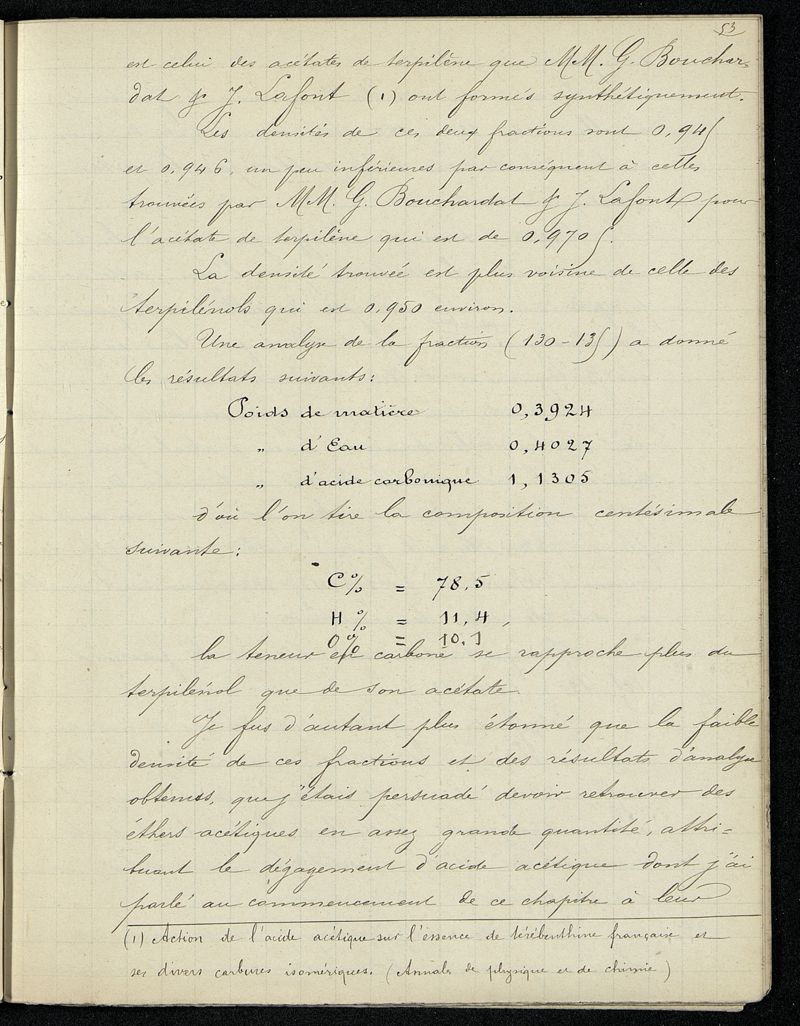 53
est celui des acétates de terpilène que MM. G. Bouchar-
dat & J. Lafont (1) ont formés synthétiquement.
Les densités de ces deux fractions sont 0,945
et 0,946, un peu inférieures par conséquent à celles
trouvées par MM. G. Bouchardat & J. Lafont pour
l'acétate de terpilène qui est de 0,9705.
La densité trouvée est plus voisine de celle des
terpilénols qui est 0,950 environ.
Une analyse de la fraction (130-135) a donné
les résultats suivants:
Poids de matière 0,3924
„ d'Eau 0,4027
„ d'acide carbonique 1,1305
d'où l'on tire la composition centésimale
suivante:
C% = 78,5
H% = 11,4,
O% = 10,1
la teneur en carbone se rapproche plus du
terpilénol que de son acétate.
Je fus d'autant plus étonné que la faible
densité de ces fractions et des résultats d'analyse
obtenus, que j'étais persuadé devoir retrouver des
éthers acétiques en assez grande quantité, attri-
buant le dégagement d'acide acétique dont j'ai
parlé au commencement de ce chapitre à leur
(1) Action de l'acide acétique sur l'éssence de térébenthine française et
ses divers carbures isomériques. (Annales de physique et de chimie)